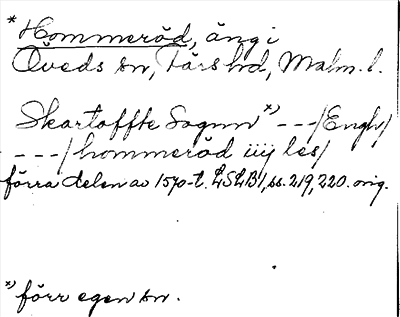 *Hommeröd, äng i
Öveds sn, Färs hd, Malm. l.
Skartoffte Sognn *) --- /Engh/
--- /hommeröd iiij les/
förra delen av 1570-t. LSLB1, ss. 219, 220. orig.
*) förr egen sn.